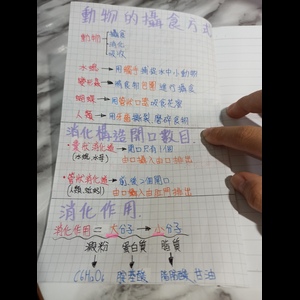 動物的攝食方式
動物 攝食
消化
吸收
水螅→用觸手捕捉水中小動物
變形蟲→捕食和包圍進行攝食
蝴蝶→用管狀口器吸食花蜜
人類→用牙齒撕裂磨碎食物
消化構造開口數目
•囊狀消化道→開口只有1個
(水螅,水母) 由口攝入由口排出
•管狀消化道→前後2個開口
(人類,蚯蚓) 由口攝入由肛門排出
消化作用
消化作用=大分子→小分子
澱粉 蛋白質 脂質
C6H12O6 胺基酸 脂肪酸、甘油